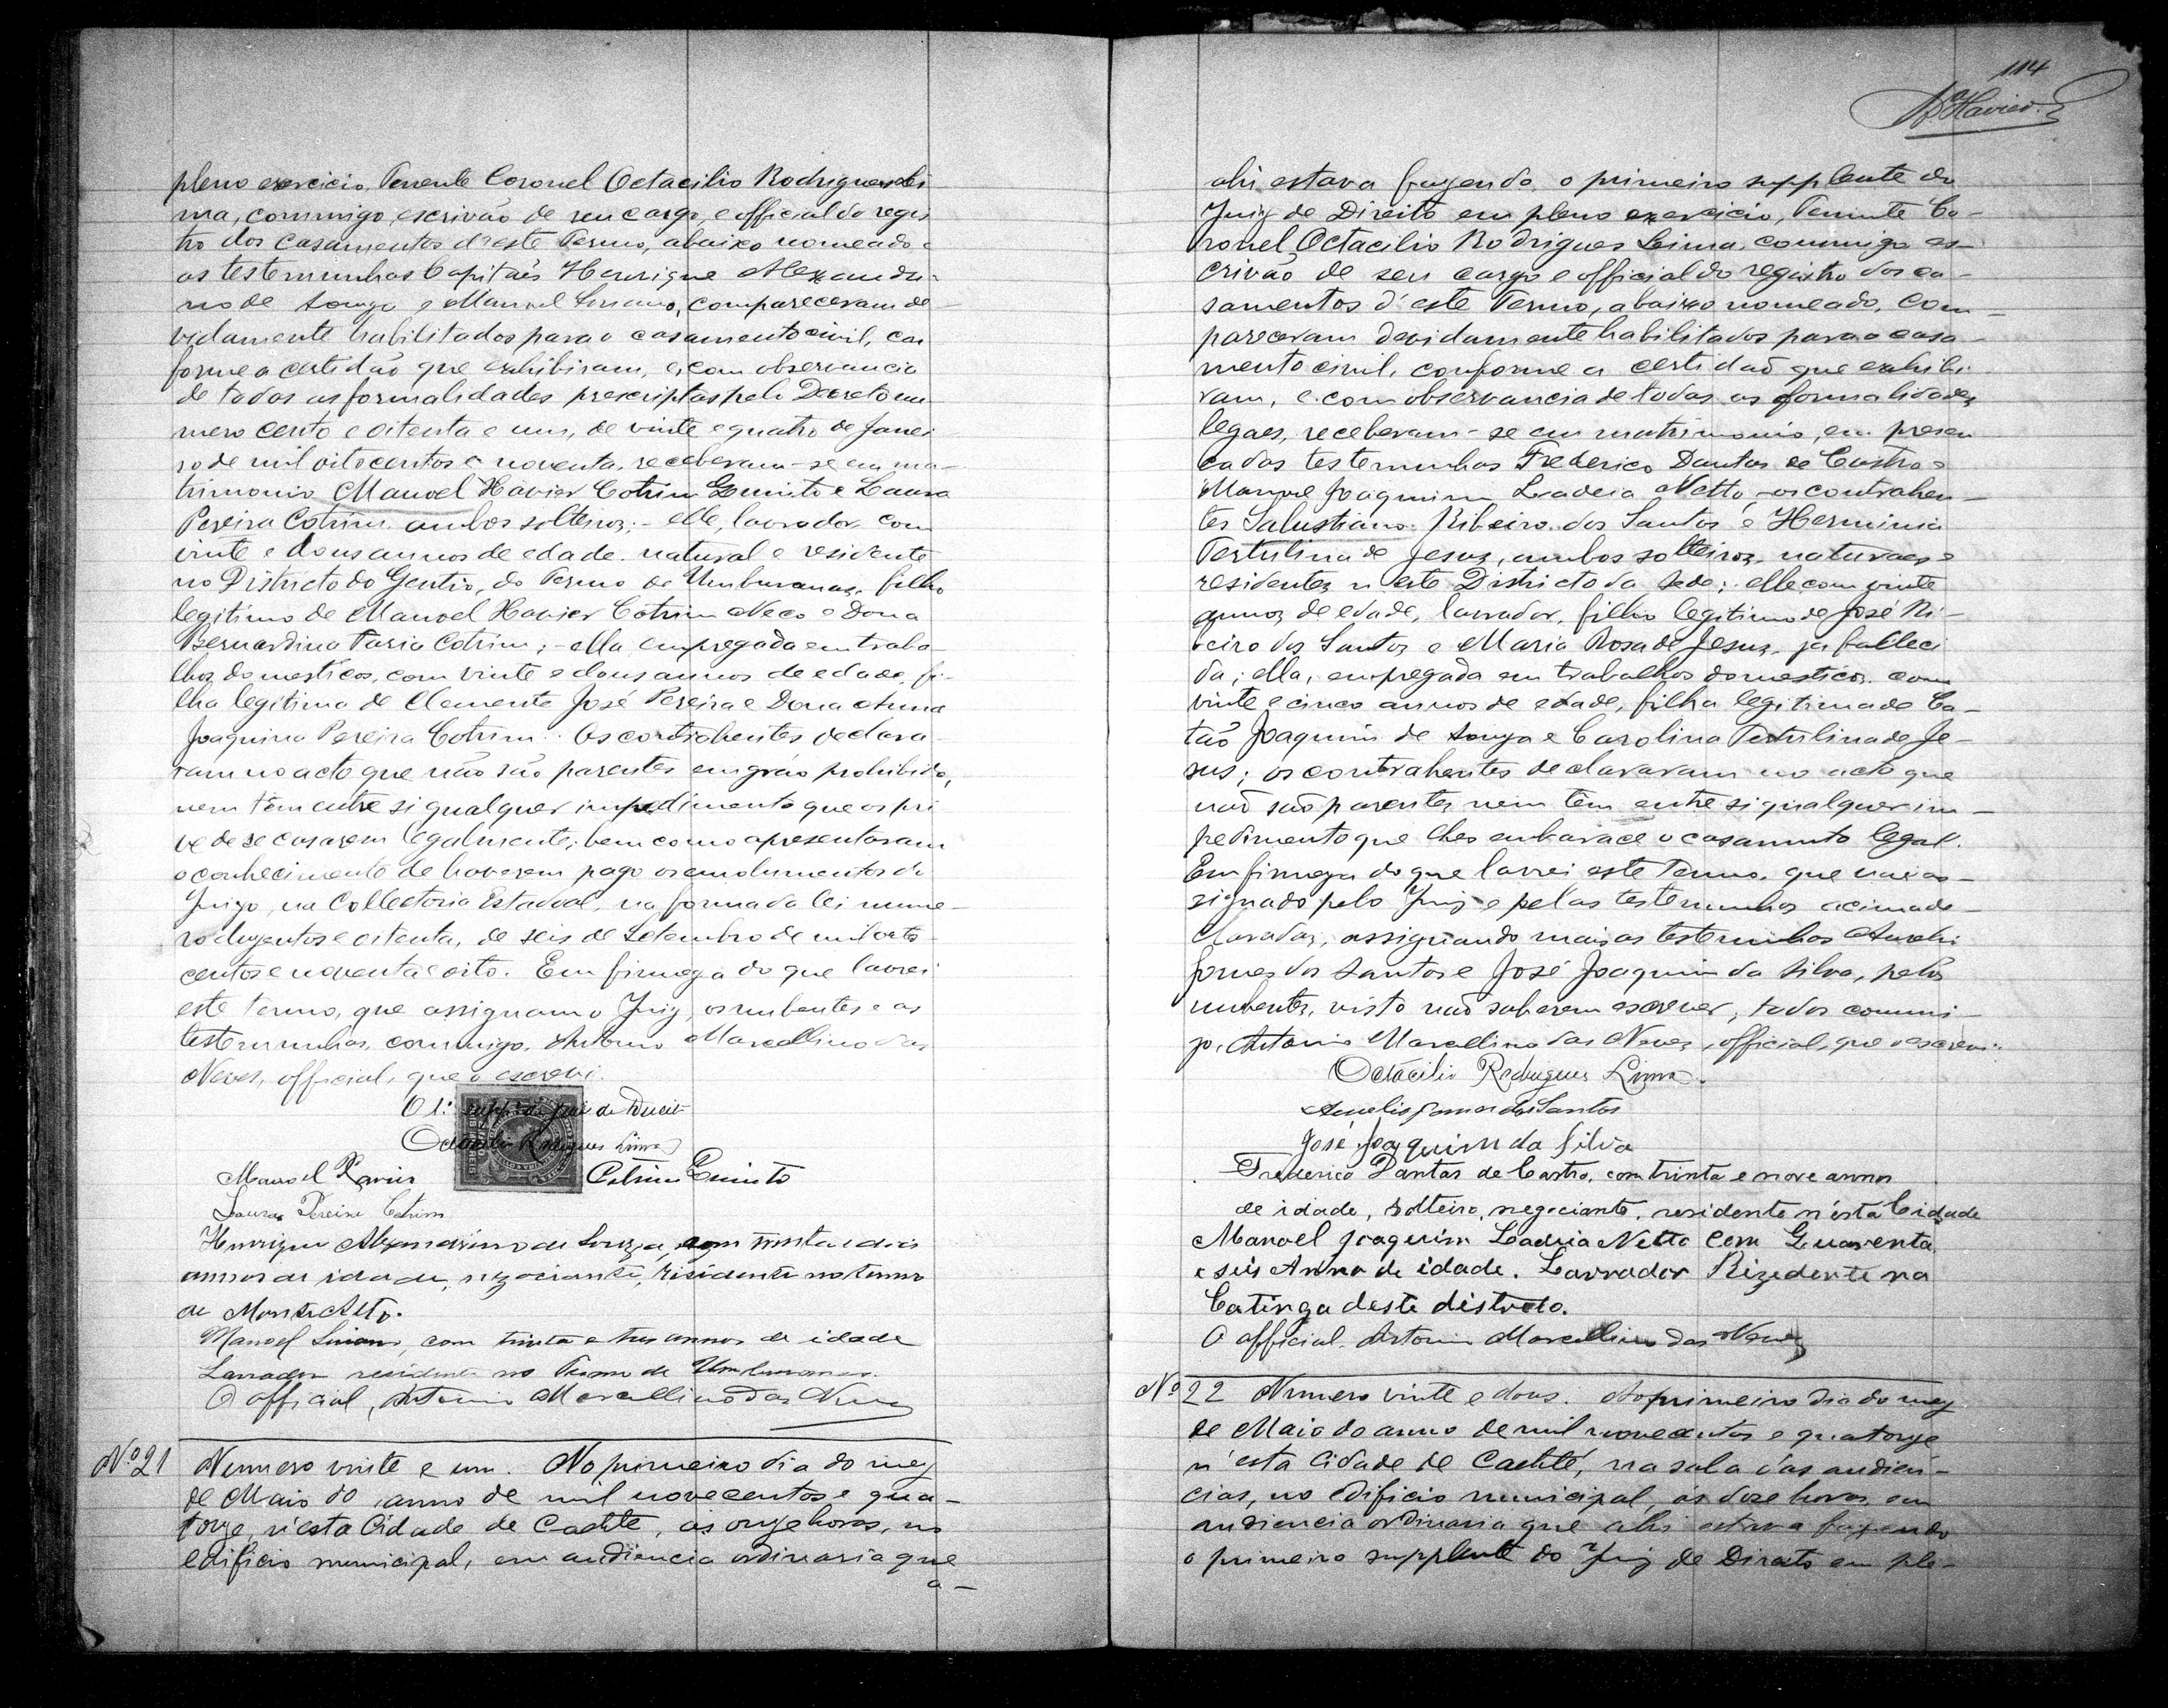 pleno exercicio, Tenente Coronel Octacilio Rodrigues Li
ma, commigo, escrivão de seu cargo, e official do regis
tro dos casamentos d'este Termo, abaixo nomeado e
as testemunhas Capitães Henrique Alexandri-
no de Souza e Manoel Luciano, compareceram de-
vidamente habilitados para o casamento civil, con
forme a certidão que exhibiram, e, com observancia
de todas as formalidades prescriptas pelo Decreto nu
mero cento e oitenta e um, de vinte e quatro de Janei
ro de mil oitocentos e noventa, receberam-se em ma-
trimonio Manoel Xavier Cotrim Quinto e Laura
Pereira Cotrim, ambos solteiros; - elle, lavrador com
vinte e dous annos de edade, natural e residente
no Districto do Gentio, do Termo de Umburanas, filho
legitimo de Manoel Xavier Cotrim Neco e Dona
Bernardina Faria Cotrim; - ella empregada em traba-
lhos domesticos, com vinte e dous annos de edade, fi-
lha legitima de Clemente José Pereira e Dona Anna
Joaquina Pereira Cotrim. Os contrahentes declara-
ram no acto que não são parentes em gráo prohibido,
nem têm entre si qualquer impedimento que os pri
ve de se casarem legalmente; bem como apresentaram
o conhecimento de haverem pago os emolumentos do
Juizo, na Collectoria Estadoal, na forma da lei nume-
ro duzentos e oitenta, de seis de Setembro de mil oito-
centos e noventa e oito. Em firmeza do que lavrei
este termo, que assignam o Juiz, os nubentes e as
testemunhas, commigo, Antonio Marcellino das
Neves, official, que o escrevi.
O 1º suppte do Juiz de Direito
Octacilio Rodrigues Lima
Manoel Xavier Cotrim Quinto
Laura Pereira Cotrim
Henrique Alexandrino de Souza, com trinta e dois
annos de idade, negociante, residente no termo
de Monte Alto.
Manoel Luciano, com trinta e tres annos de idade
Lavrador residente no Termo de Umburanas.
O official, Antonio Marcellino das Neves
Nº 21 Numero vinte e um. No primeiro dia do mez
de Maio do anno de mil novecentos e qua-
torze, n'esta Cidade de Caetité, as onze horas, no
edificio municipal, em audiencia ordinaria que
a-
114
ahi estava fazendo o primeiro supplente do
Juiz de Direito em pleno exercicio, Tenente Co-
ronel Octacilio Rodrigues Lima, commigo es-
crivão de seu cargo e official do registro dos ca-
samentos d'este Termo, abaixo nomeado, com-
pareceram devidamente habilitados para o casa-
mento civil, conforme a certidaõ que exhibi-
ram, e com observancia de todas as formalidades
legaes, receberam-se em matrimonio, em presen
ça das testemunhas Frederico Dantas de Castro e
Manoel Joaquim Ladeia Netto, os contrahen-
tes Salustiano Ribeiro dos Santos e Herminia
Tertulina de Jesus, ambos solteiros, naturaes e
residentes n'este Districto da Séde; elle com vinte
annos de edade, lavrador, filho legitimo de José Ri-
beiro dos Santos e Maria Rosa de Jesus, ja falleci
da; ella, empregada em trabalhos domesticos com
vinte e cinco annos de edade, filha legitima de Ca-
tão Joaquim de Souza e Carolina Tertulina de Je-
sus; os contrahentes declararam no acto que
naõ saõ parentes nem têm entre si qualquer im-
pedimento que lhes embarace o casamento legal.
Em firmeza do que lavrei este Termo, que vai as-
signado pelo Juiz e pelas testemunhas acima de-
claradas, assignando mais as testemunhas Aurelio
Gomes dos Santos e José Joaquim da Silva, pelos
nubentes, visto naõ saberem escrever, todos commi-
go, Antonio Marcellino das Neves, official, que o escrevi.
Octacilio Rodrigues Lima.
Aurelio Gomes dos Santos
José Joaquim da Silva
Frederico Dantas de Castro, com trinta e nove annos
de idade, solteiro, negociante, residente n'esta Cidade
Manoel Joaquim Ladeia Netto Com Quarenta
e seis Anno de idade. Lavrador Rizedente na
Catinga deste distrcto.
O official, Antonio Marcellino das Neves
Nº 22 Numero vinte e dous. Ao primeiro dia do mez
de Maio do anno de mil novecentos e quatorze
n'esta Cidade de Caetité, na sala das audien-
cias, no edificio municipal, ás doze horas, em
audiencia ordinaria que ahi estava fazendo
o primeiro supplente do Juiz de Direito em ple-